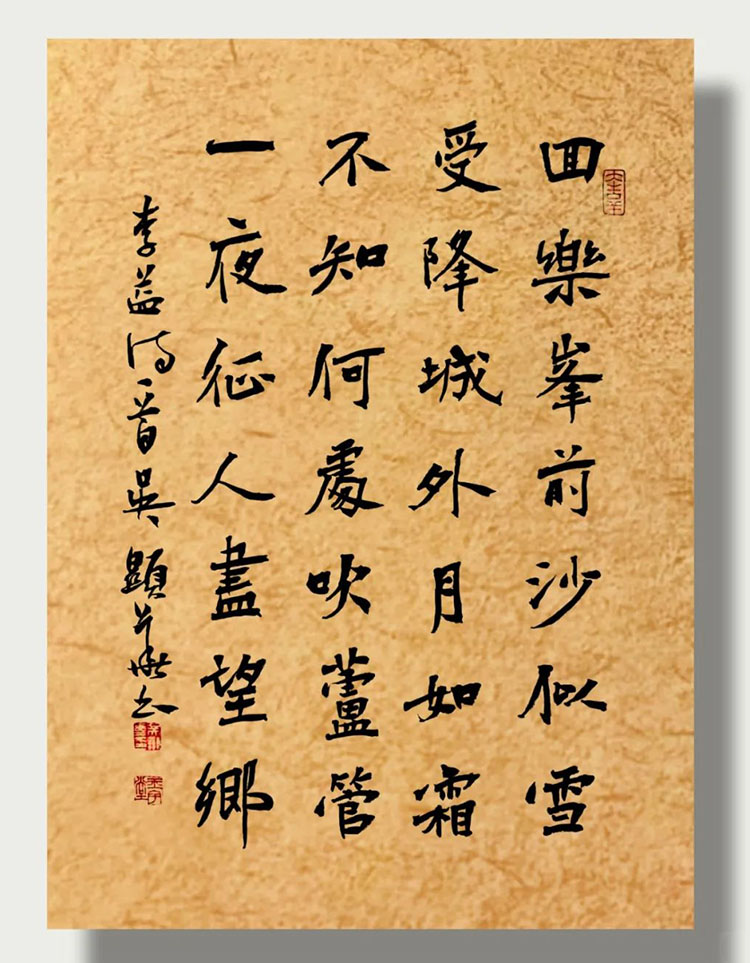 囬樂峯前沙似雪
受降城外月如霜
不知何處吹蘆管
一夜征人盡望鄉
李益詩一首吳顯書